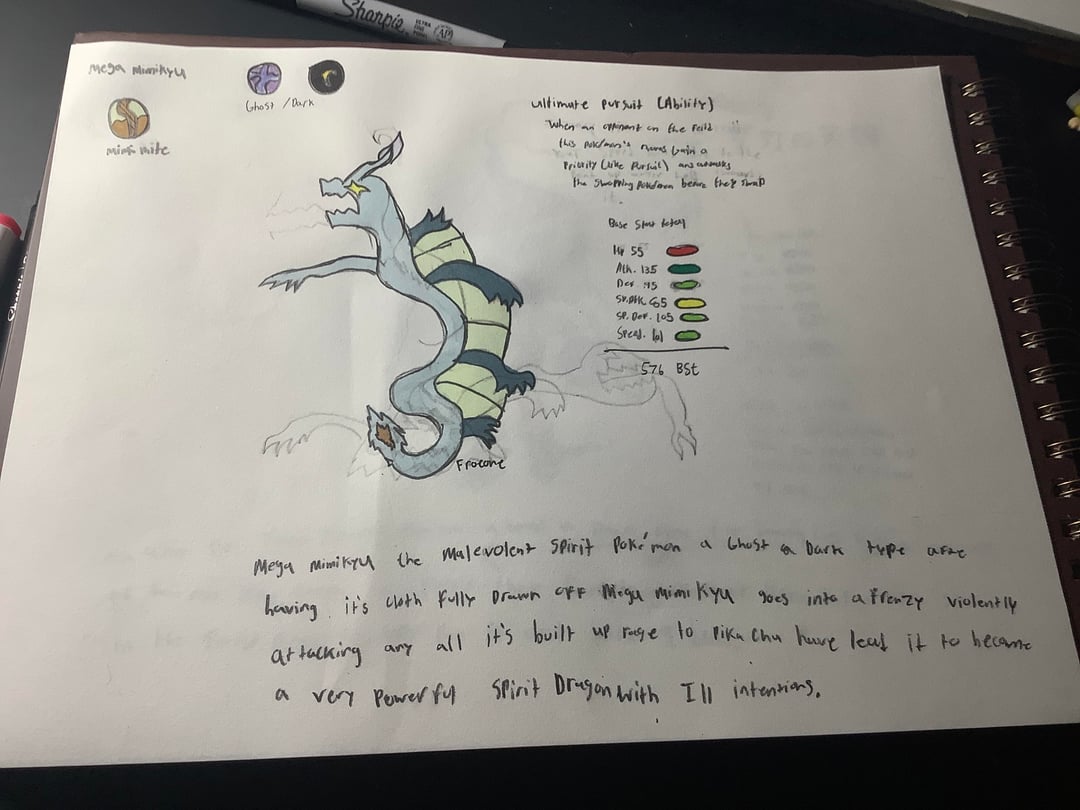 Sharpie
Mega Mimikyu
Ghost / Dark
Ultimate Pursuit (Ability)
When an opponent on the Feild
this Pokémon's moves gain a
Priority (like Pursuit) and
the swapping Pokémon before they swap
Base
HP 55
Atk. 135
Def.
SP.Atk. 65
SP. Def. 105
Speed. 101
576 BSt
Mega Mimikyu the Malevolent Spirit Poké'mon a Ghost a Dark type
having it's cloth fully Drawn OFF Mega Mimikyu goes into a frenzy violently
attacking any all it's built up rage to Pikachu have lead it to become
a very powerful Spirit Dragon with Ill intentions.